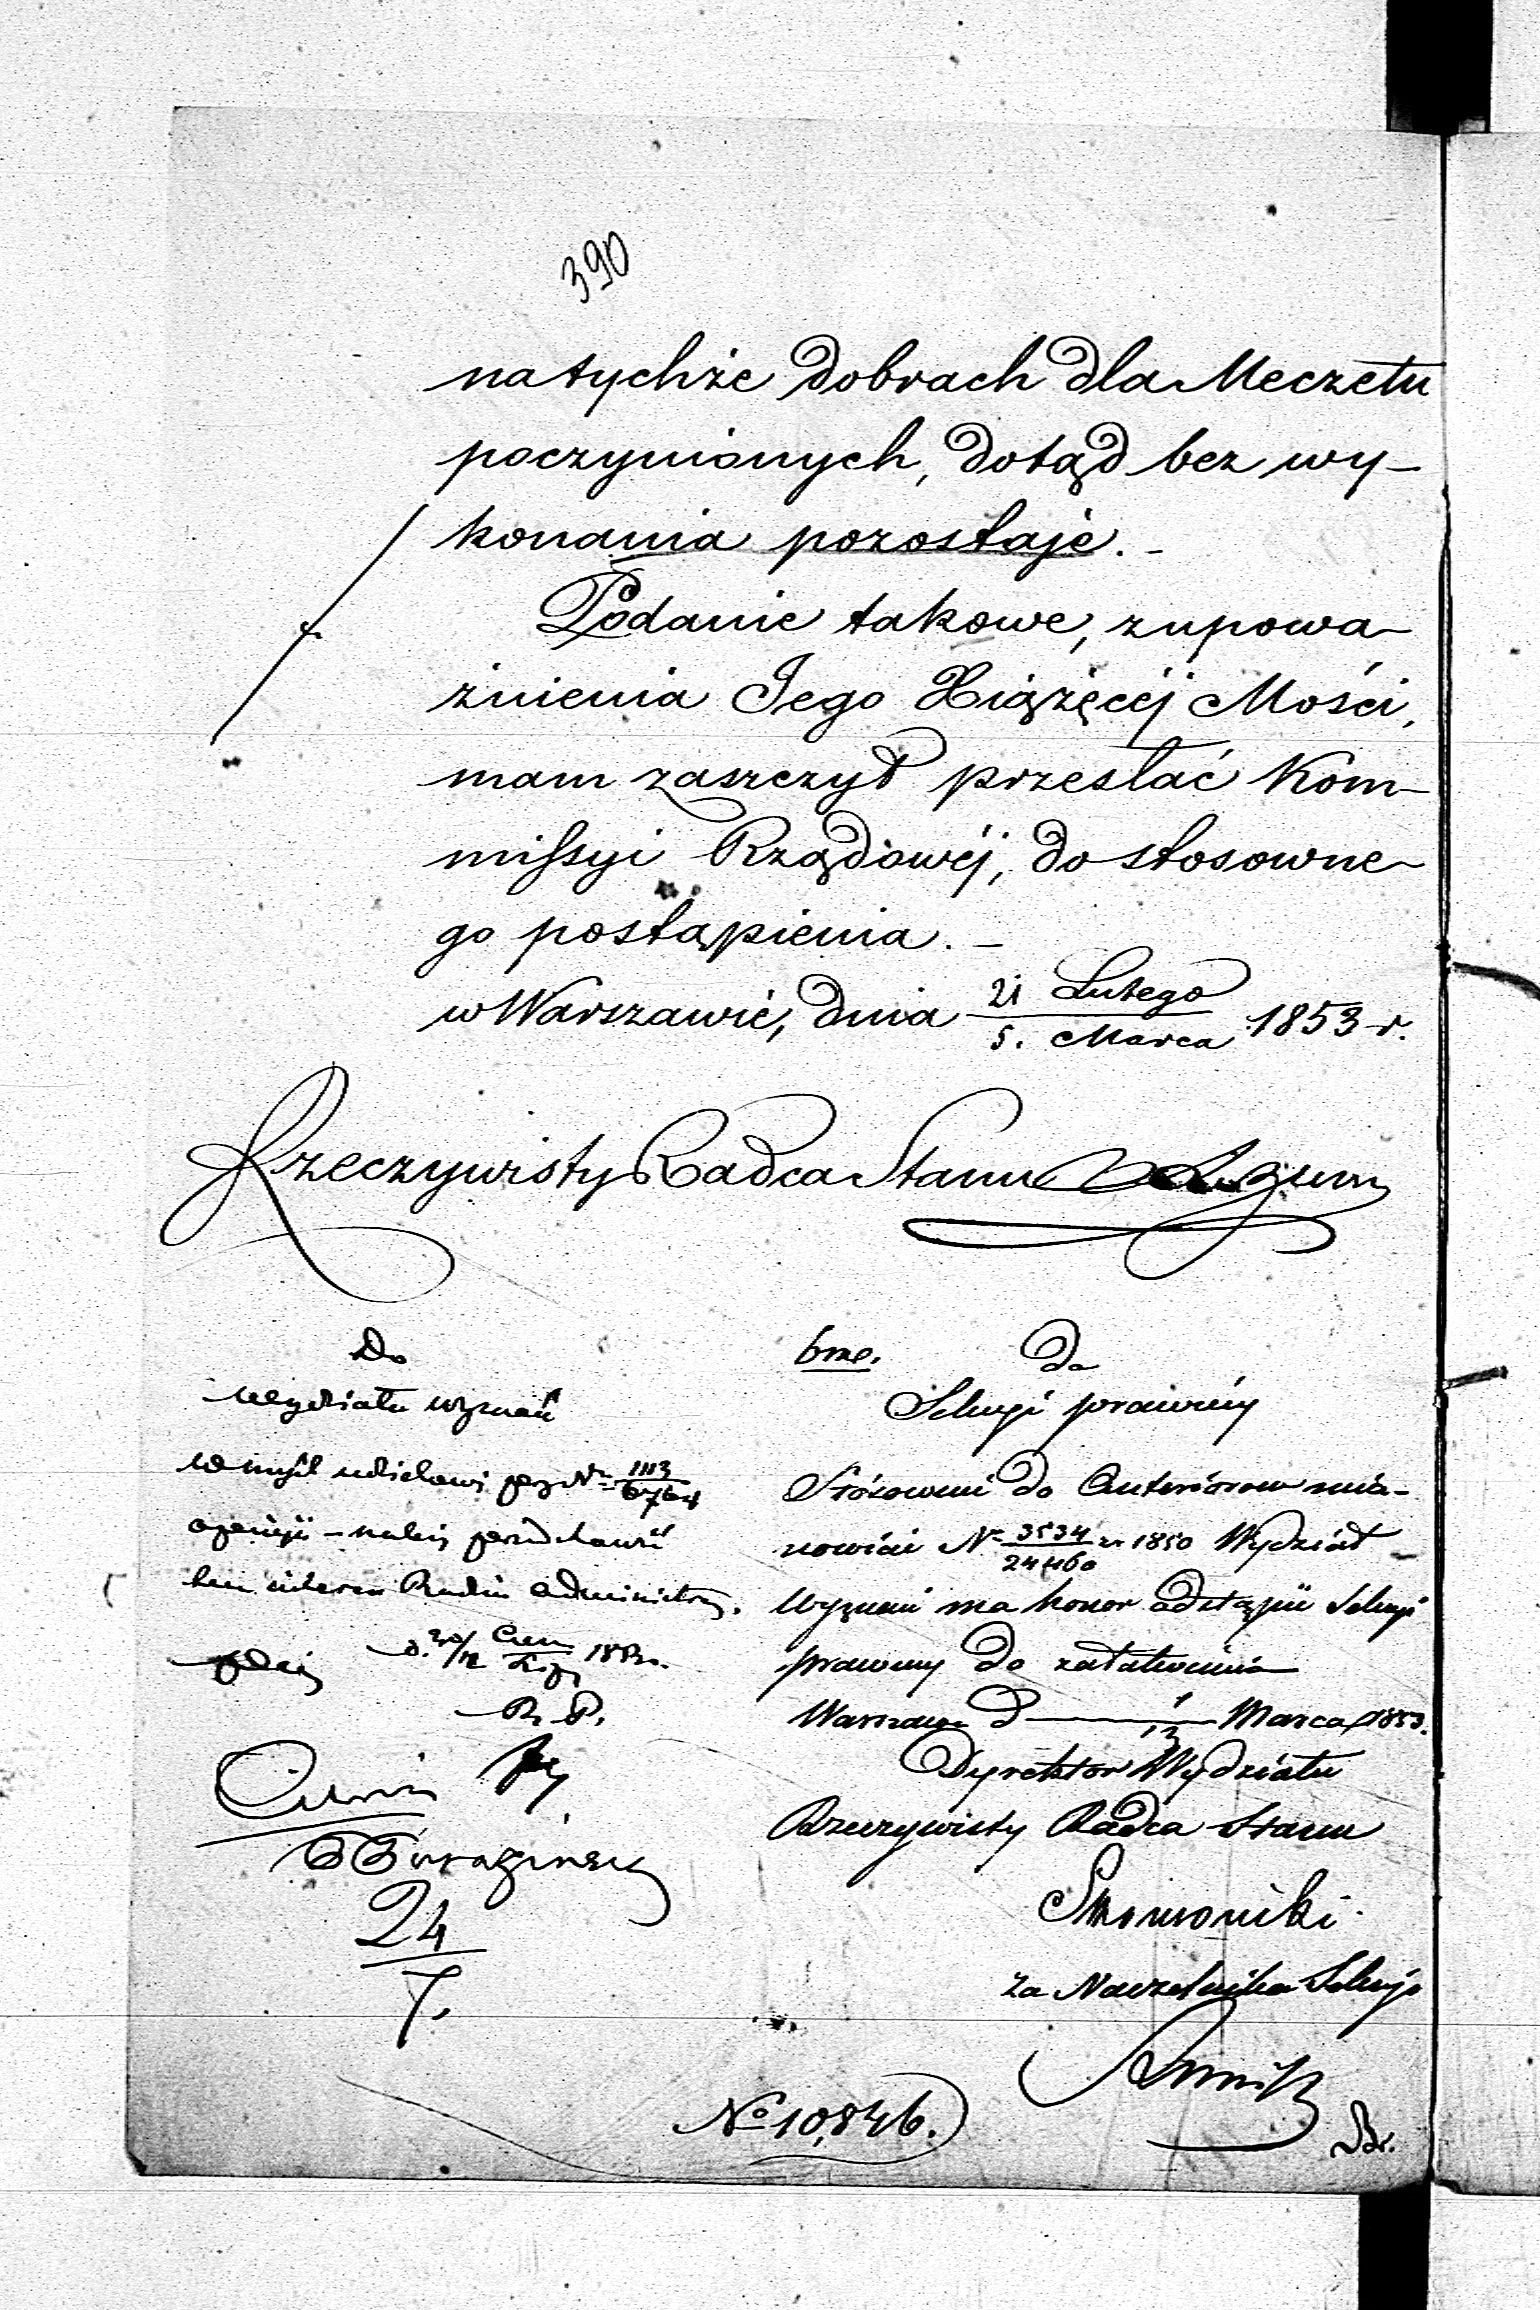 390
na tychże dobrach dla Meczetu
poczynionych, dotąd bez wy-
konania pozostaje. -
Podanie takowe, z upowa-
żnienia Jego Xiążęcéj Mości,
mam zaszczyt przesłać Kom-
missyi Rządowéj, do stosowne-
go postąpienia. -
w Warszawie, dnia 21 Lutego / 5. Marca 1853 r.
Rzeczywisty Radca Stanu
Do
Wydziału Wyznań
w myśl udzieloney przez No 1113/6764
opinii - należy przedstawić
ten interes Radzie Administr.
1853.
R. P.
24
7.
bme. Do
Sekcyi prawnéj
Stósownie do
No 3534/24460 z 1850 Wydział
Wyznań ma honor odstąpić Sekcyi
prawnéj do załatwienia
Warszawa d 1/13 Marca 1853.
Dyrektor Wydziału
Rzeczywisty Radca Stanu
za Naczelnika Sekcyi
No 10,846.